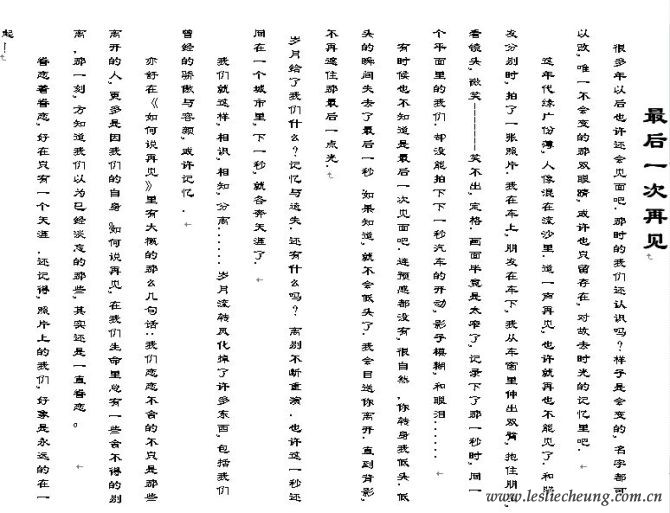 最后一次再见
很多年以后也许还会见面吧.那时的我们还认识吗?样子是会变的,名字都可
以改,唯一不会变的那双眼睛,或许也只留存在,对故去时光的记忆里吧.
这年代缘广份薄,人像混在流沙里.道一声再见,也许就再也不能见了.和
友分别时,拍了一张照片.我在车上,朋友在车下,我从车窗里伸出双臂,抱住朋友,
看镜头,微笑————笑不出,定格.画面毕竟是太窄了,记录下了那一秒时,同一
个平面里的我们.却没能拍下下一秒汽车的开动,影子模糊,和眼泪......
有时候也不知道是最后一次见面吧.连预感都没有,很自然.你转身我低头.低
头的瞬间失去了最后一秒.如果知道,就不会低头了.我会目送你离开.直到背影,
不再遮住那最后一点光.
岁月给了我们什么?记忆与遗失.还有什么吗?离别不断重演.也许这一秒还
同在一个城市里,下一秒,就各奔天涯了.
我们就这样,相识,相知,分离......岁月流转风化掉了许多东西,包括我们
曾经的骄傲与容颜,或许记忆.
亦舒在《如何说再见》里有大概的那么几句话:我们恋恋不舍的不只是那些
离开的人,更多是因我们的自身。如何说再见,在我们生命里总有一些舍不得的别
离,那一刻,方知道我们以为已经淡忘的那些,其实还是一直眷恋。
眷恋着眷恋,好在只有一个天涯.还记得,照片上的我们,好象是永远的在一
起—!
www.lesliecheung.com.cn